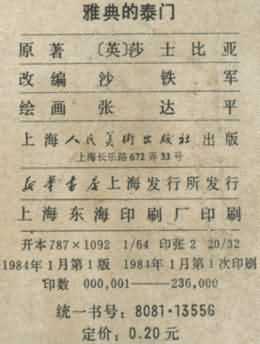 雅典的泰门
原著 〔英〕莎士比亚
改编 沙铁军
绘画 张达平
上海人民美术出版社出版
上海长乐路672弄33号
新华书店上海发行所发行
上海东海印刷厂印刷
开本787×1092 1/64 印张2 20/32
1984年1月第1版 1984年1月第1次印刷
印数 000,001——236,000
统一书号:8081·13556
定价:0.20元